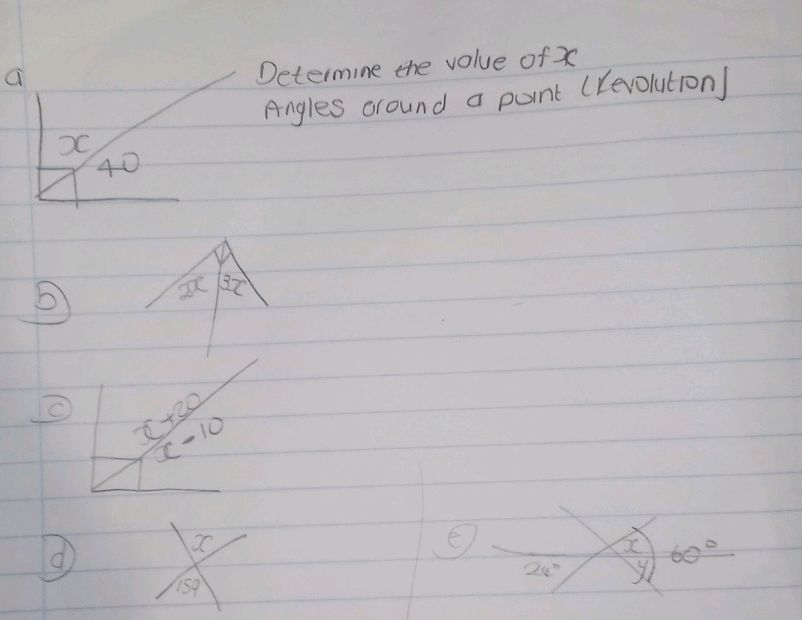 a
Determine the value of x
Angles around a point (revolution)
x
40
b)
2x 3x
c)
x+20
x-10
d)
x
159
e)
24°
x
y
60°